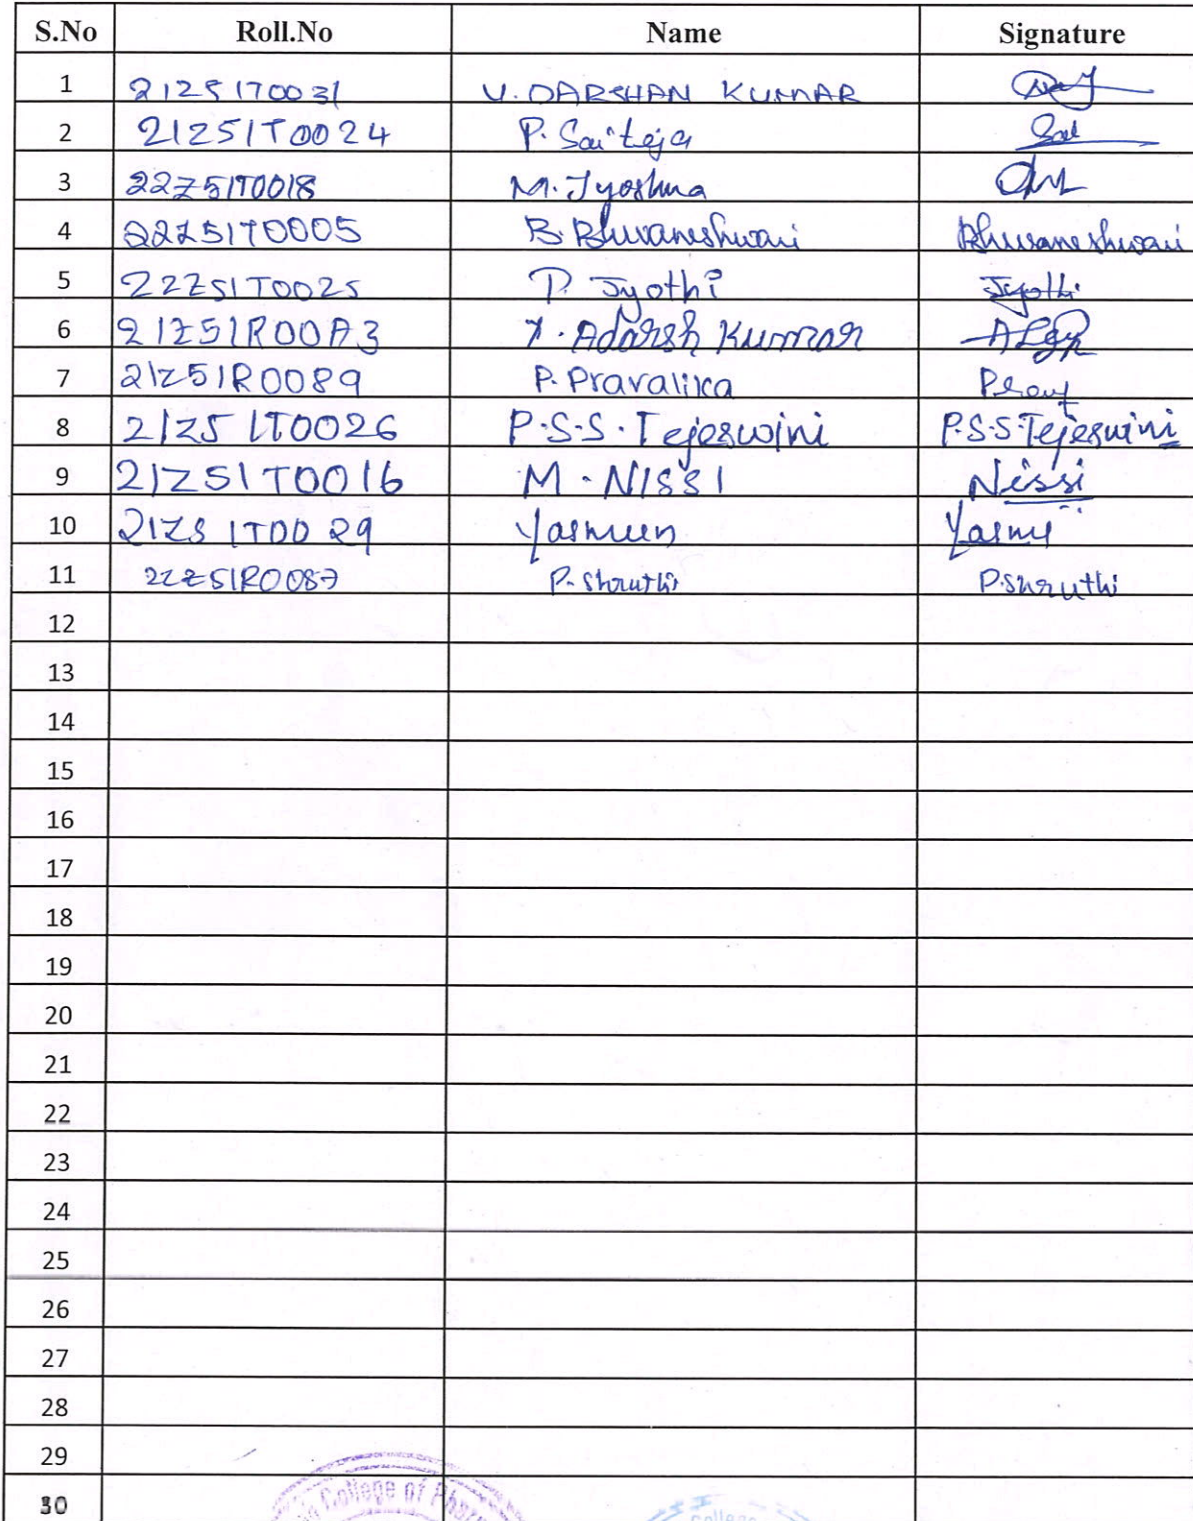 S.No Roll.No Name Signature
1 21Z51T0031 V. DARSHAN KUMAR
2 21Z51T0024 P. Saiteja Sai
3 22Z51T0018 M. Jyoshna
4 22Z51T0005 B. Bhuvaneshwari Bhuvaneshwari
5 22Z51T0025 P. Jyothi Jyothi
6 21Z51R00A3 Adarsh Kumar
7 21Z51R0089 P. Pravalika
8 21Z51T0026 P.S.S. Tejeswini P.S.S Tejeswini
9 21Z51T0016 M. NISSI Nissi
10 21Z51T0029 Yasmeen
11 22Z51R0087 P. Shruthi P.Shruthi
12
13
14
15
16
17
18
19
20
21
22
23
24
25
26
27
28
29
30
College of
College